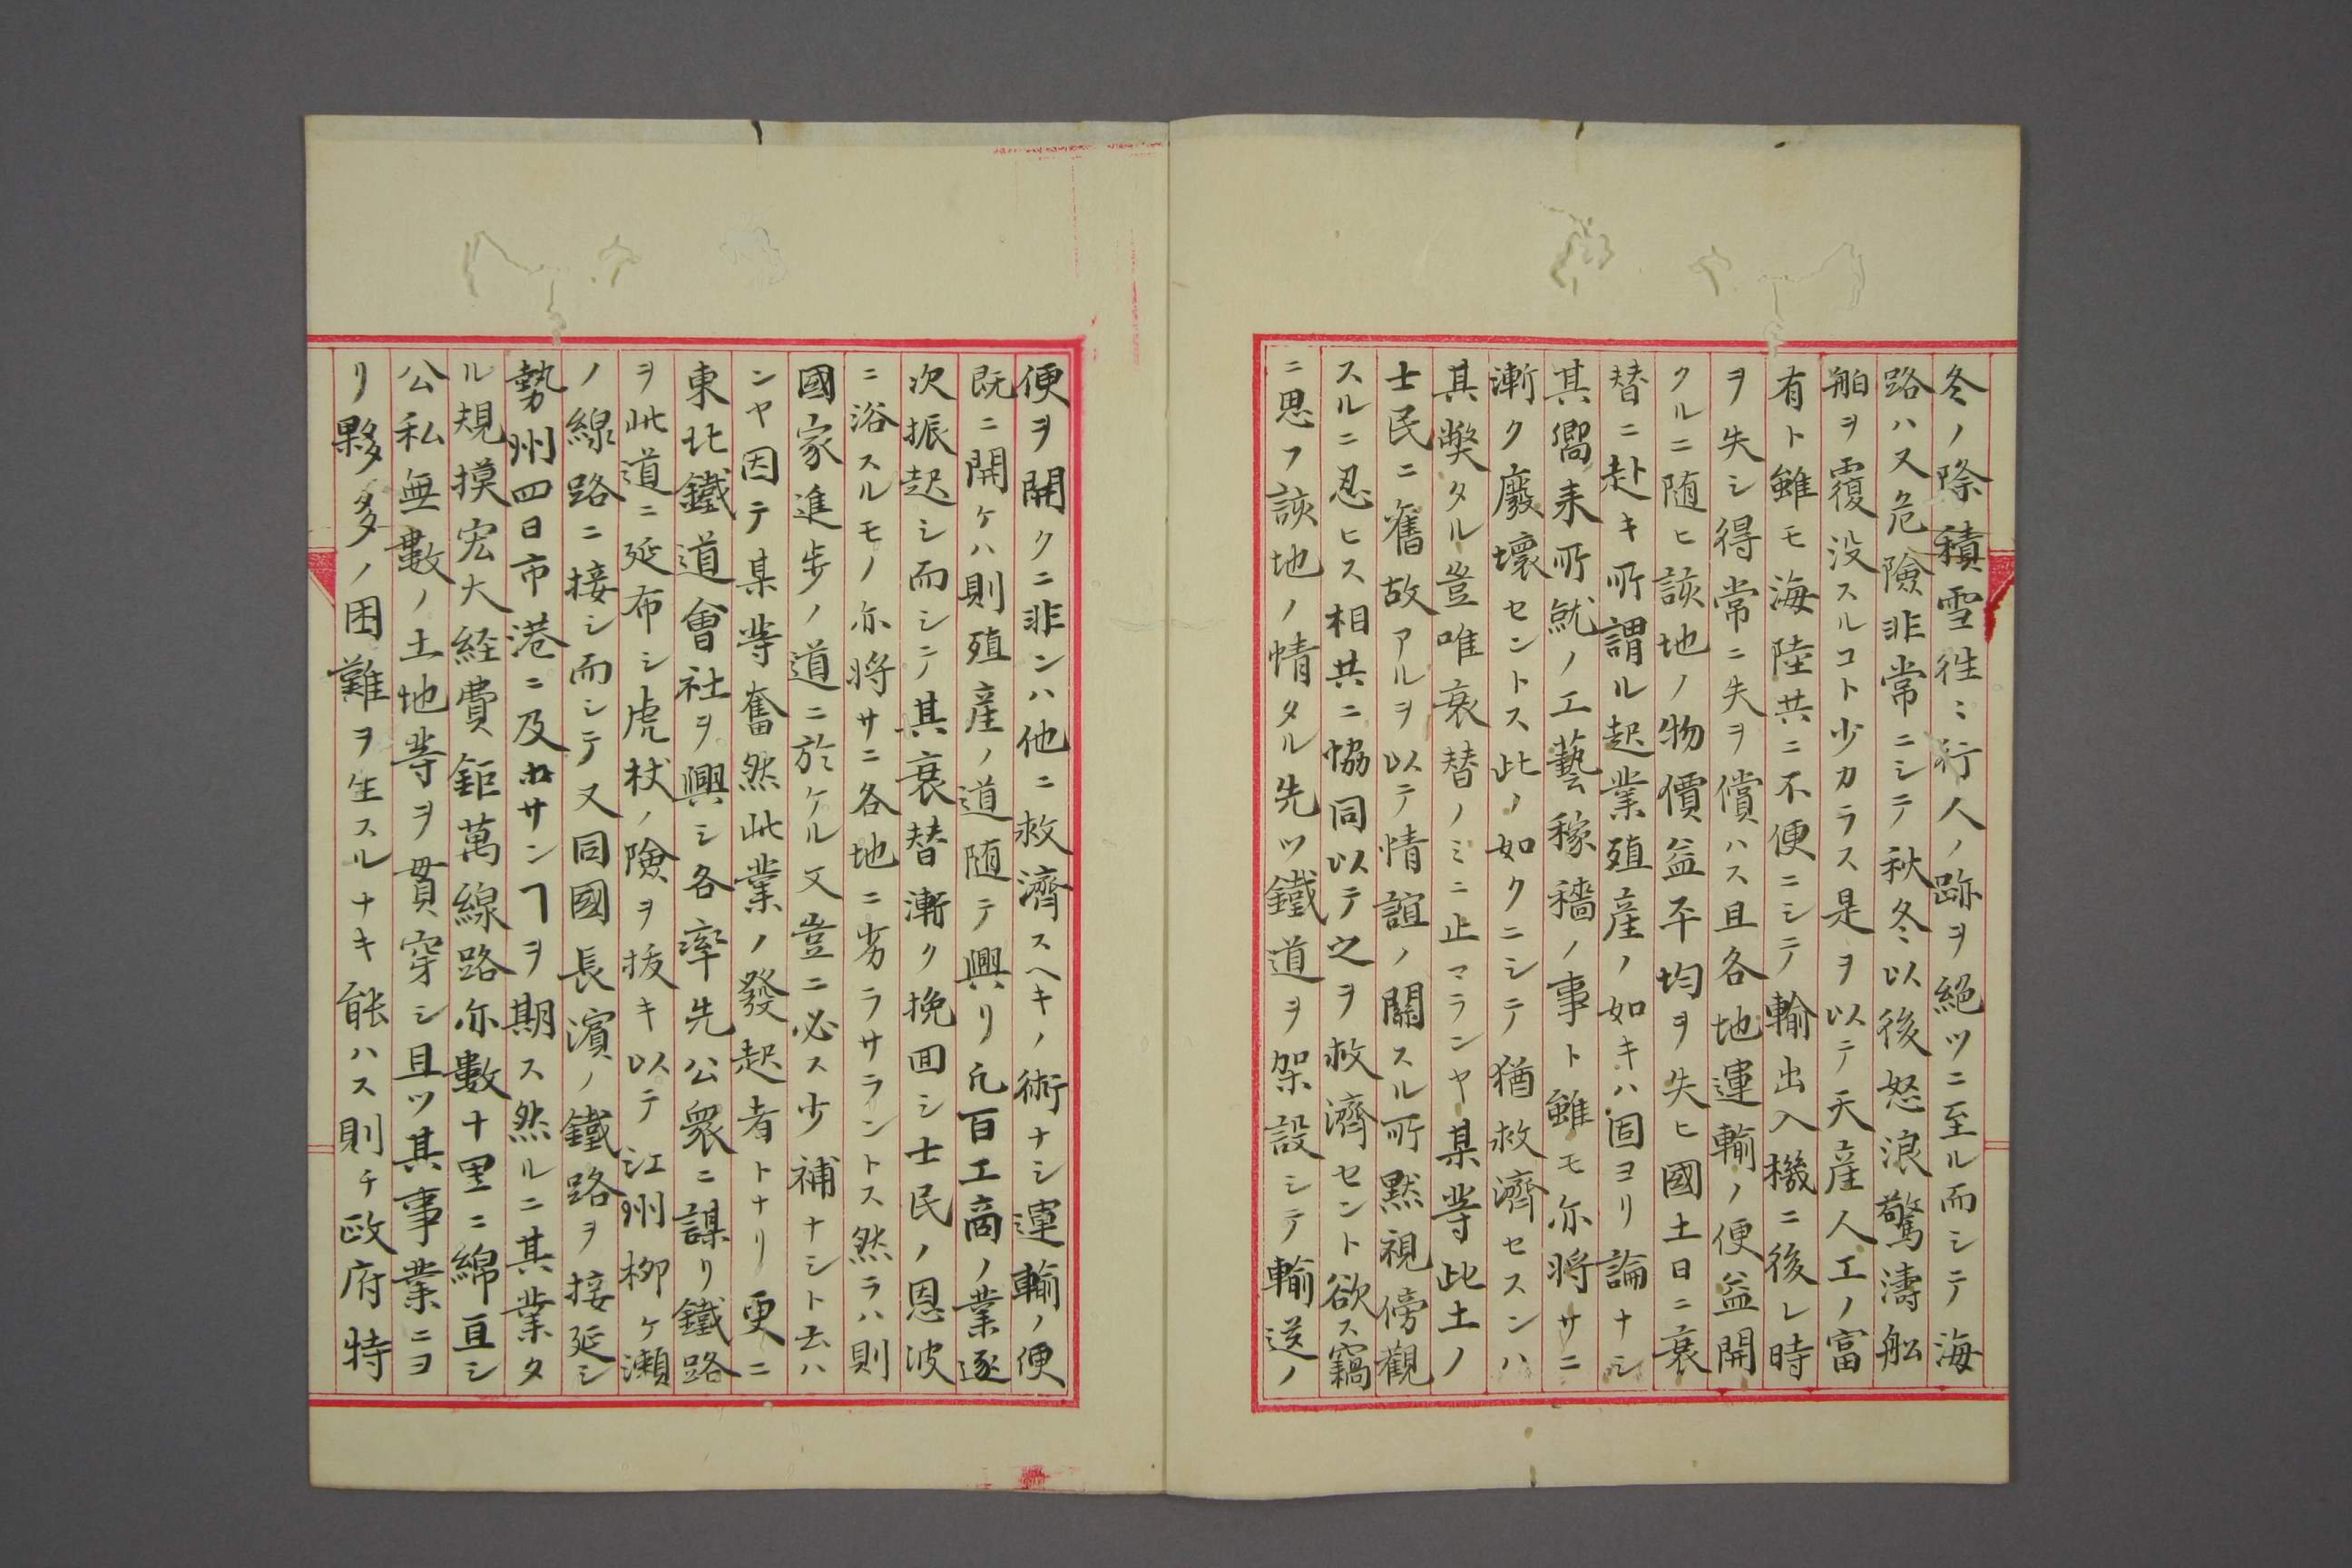 冬ノ際積雪徃ミ行人ノ跡ヲ絶ツニ至ル而シテ海
路ハ又危險非常ニシテ秋冬以後怒浪驚濤舩
舶ヲ覆没スルコト少カラス是ヲ以テ天産人工ノ富
有ト雖モ海陸共ニ不便ニシテ輸出入機ニ後レ時
ヲ失シ得常ニ失ヲ償ハス且各地運輸ノ便益開
クルニ随ヒ該地ノ物價益平均ヲ失ヒ國土日ニ衰
替ニ赴キ所謂ル起業殖産ノ如キハ固ヨリ論ナシ
其嚮来所就ノ工藝稼穡ノ事ト雖モ亦将サニ
漸ク廢壊セントス此ノ如クニシテ猶救濟セスンハ
其弊タル豈唯衰替ノミニ止マランヤ某等此土ノ
士民ニ舊故アルヲ以テ情誼ノ關スル所黙視傍觀
スルニ忍ヒス相共ニ恊同以テ之ヲ救濟セント欲ス竊
ニ思フ該地ノ情タル先ツ鐵道ヲ架設シテ輸送ノ
便ヲ開クニ非ンハ他ニ救濟スヘキノ術ナシ運輸ノ便
既ニ開ケハ則殖産ノ道随テ興リ凢百工商ノ業逐
次振起シ而シテ其衰替漸ク挽回シ士民ノ恩波
ニ浴スルモノ亦将サニ各地ニ劣ラサラントス然ラハ則
國家進歩ノ道ニ於ケル又豈ニ必ス少補ナシト云ハ
ンヤ因テ某等奮然此業ノ發起者トナリ更ニ
東北鐵道會社ヲ興シ各率先公衆ニ謀リ鐵路
ヲ此道ニ延布シ虎杖ノ險ヲ拔キ以テ江州柳ヶ瀬
ノ線路ニ接シ而シテ又同國長濱ノ鐵路ヲ接延シ
勢州四日市港ニ及ホサンヿヲ期ス然ルニ其業タ
ル規摸宏大経費鉅萬線路亦數十里ニ綿亘シ
公私無數ノ土地等ヲ貫穿シ且ツ其事業ニヨ
リ夥多ノ困難ヲ生スルナキ能ハス則チ政府特